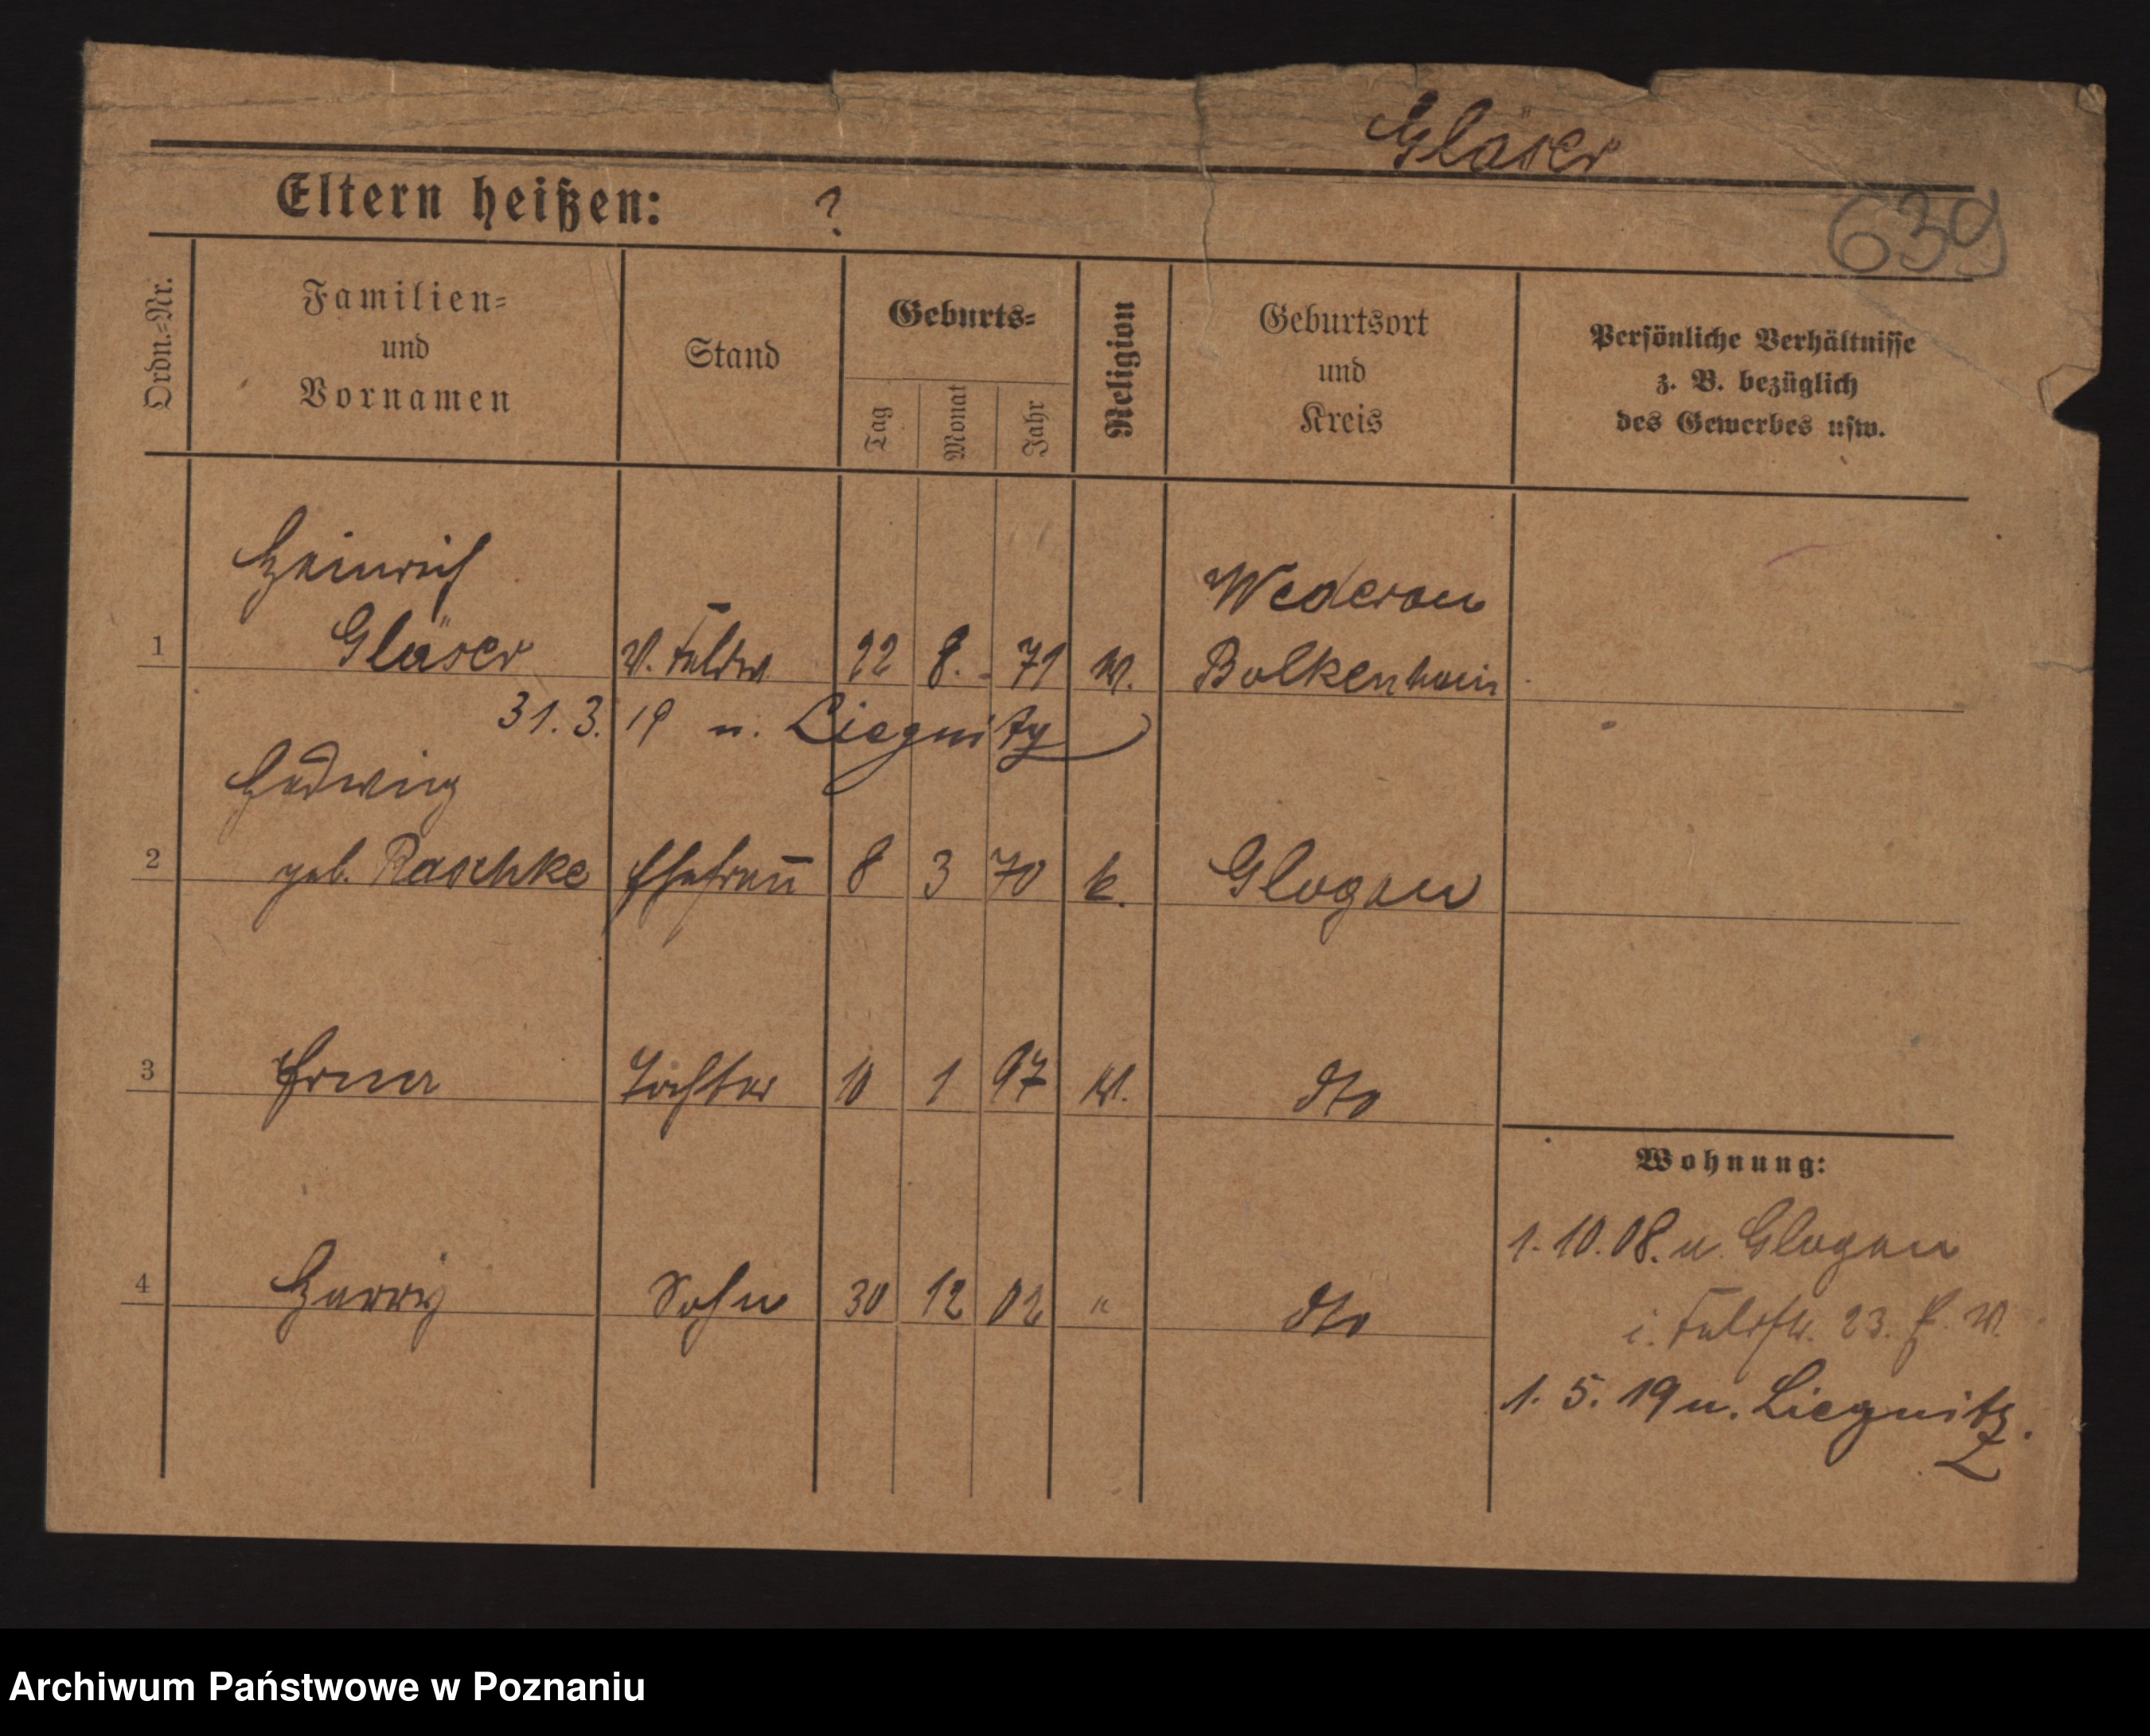 Gläser
Eltern heißen: ?
639
Ordn.-Nr.
Familien-
und
Vornamen
Stand
Geburts-
Tag
Monat
Jahr
Religion
Geburtsort
und
Kreis
Persönliche Verhältnisse
z. B. bezüglich
des Gewerbes usw.
Heinrich
Wederau
1 Gläser 22 8. 71 Bolkenhain
31. 3. 19 n. Liegnitz
Hedwig
2 geb. Raschke Ehefrau 8 3 70 k. Glogau
3 Erna Tochter 10 1 97 dto
Wohnung:
1. 10. 08. n. Glogau
4 Harry Sohn 30 12 02 " dto
i. 23.
1. 5. 19 n. Liegnitz.
Archiwum Państwowe w Poznaniu